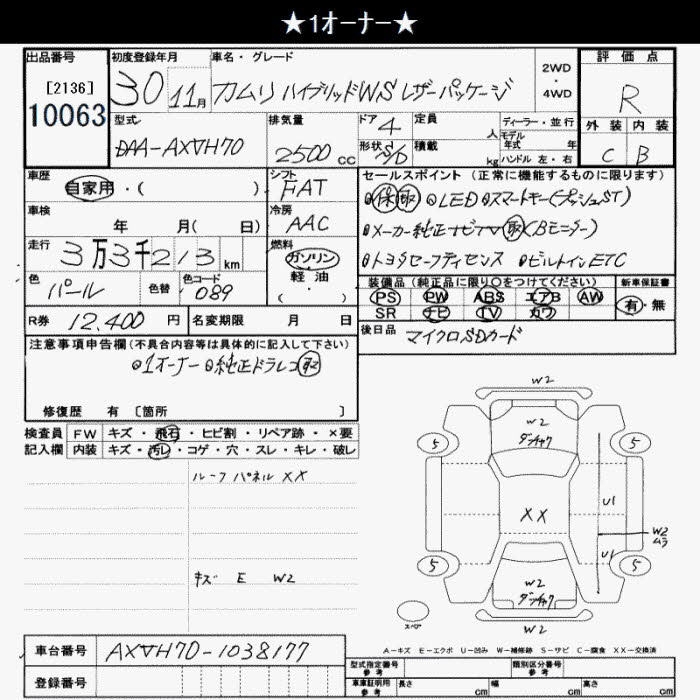 ★1オーナー★
出品番号 初度登録年月 車名・グレード 2WD・4WD 評価点
[2136]
10063
30 11月 カムリ ハイブリッドWS レザーパッケージ R
型式 排気量 ドア 定員 ディーラー・並行 外装 内装
DAA-AXVH70 2500 CC 4 人 モデル年式 年
形状 S/D 積載 kg ハンドル 左・右 C B
車歴 シフト セールスポイント (正常に機能するものに限ります)
自家用・( ) FAT 保 取 LED スマートキー(プッシュST)
車検 冷房 メーカー純正ナビTV 取 (Bモニター)
年 月( 日) AAC
走行 燃料 トヨタセーフティセンス ビルトインETC
3万3千213km ガソリン
軽油
・( )
色 色替 色コード 装備品 (純正品に限り○をつけてください) 新車保証書
パール 089 PS PW ABS エアB AW 有・無
SR ナビ TV カワ
R券 12,400円 名変期限 月 日 後日品 マイクロSDカード
注意事項申告欄 (不具合内容等は具体的に記入して下さい)
1オーナー 純正ドラレコ 取
修復歴 有 〔箇所 〕
検査員 FW キズ・飛石・ヒビ割・リペア跡・×要
記入欄 内装 キズ・汚レ・コゲ・穴・スレ・キレ・破レ
ルーフパネル XX
キズ E W2
W2
W2
ダンチャク
5 5
XX
U1
W2
ムラ
U1
5 5
W2
ダンチャク
スペア
W2
A-キズ E-エクボ U-凹み W-補修跡 S-サビ C-腐食 XX-交換済
車台番号 AXVH70-1038177
登録番号
型式指定番号 参考 類別区分番号 参考
車庫証明用 参考 長さ cm 幅 cm 高さ cm